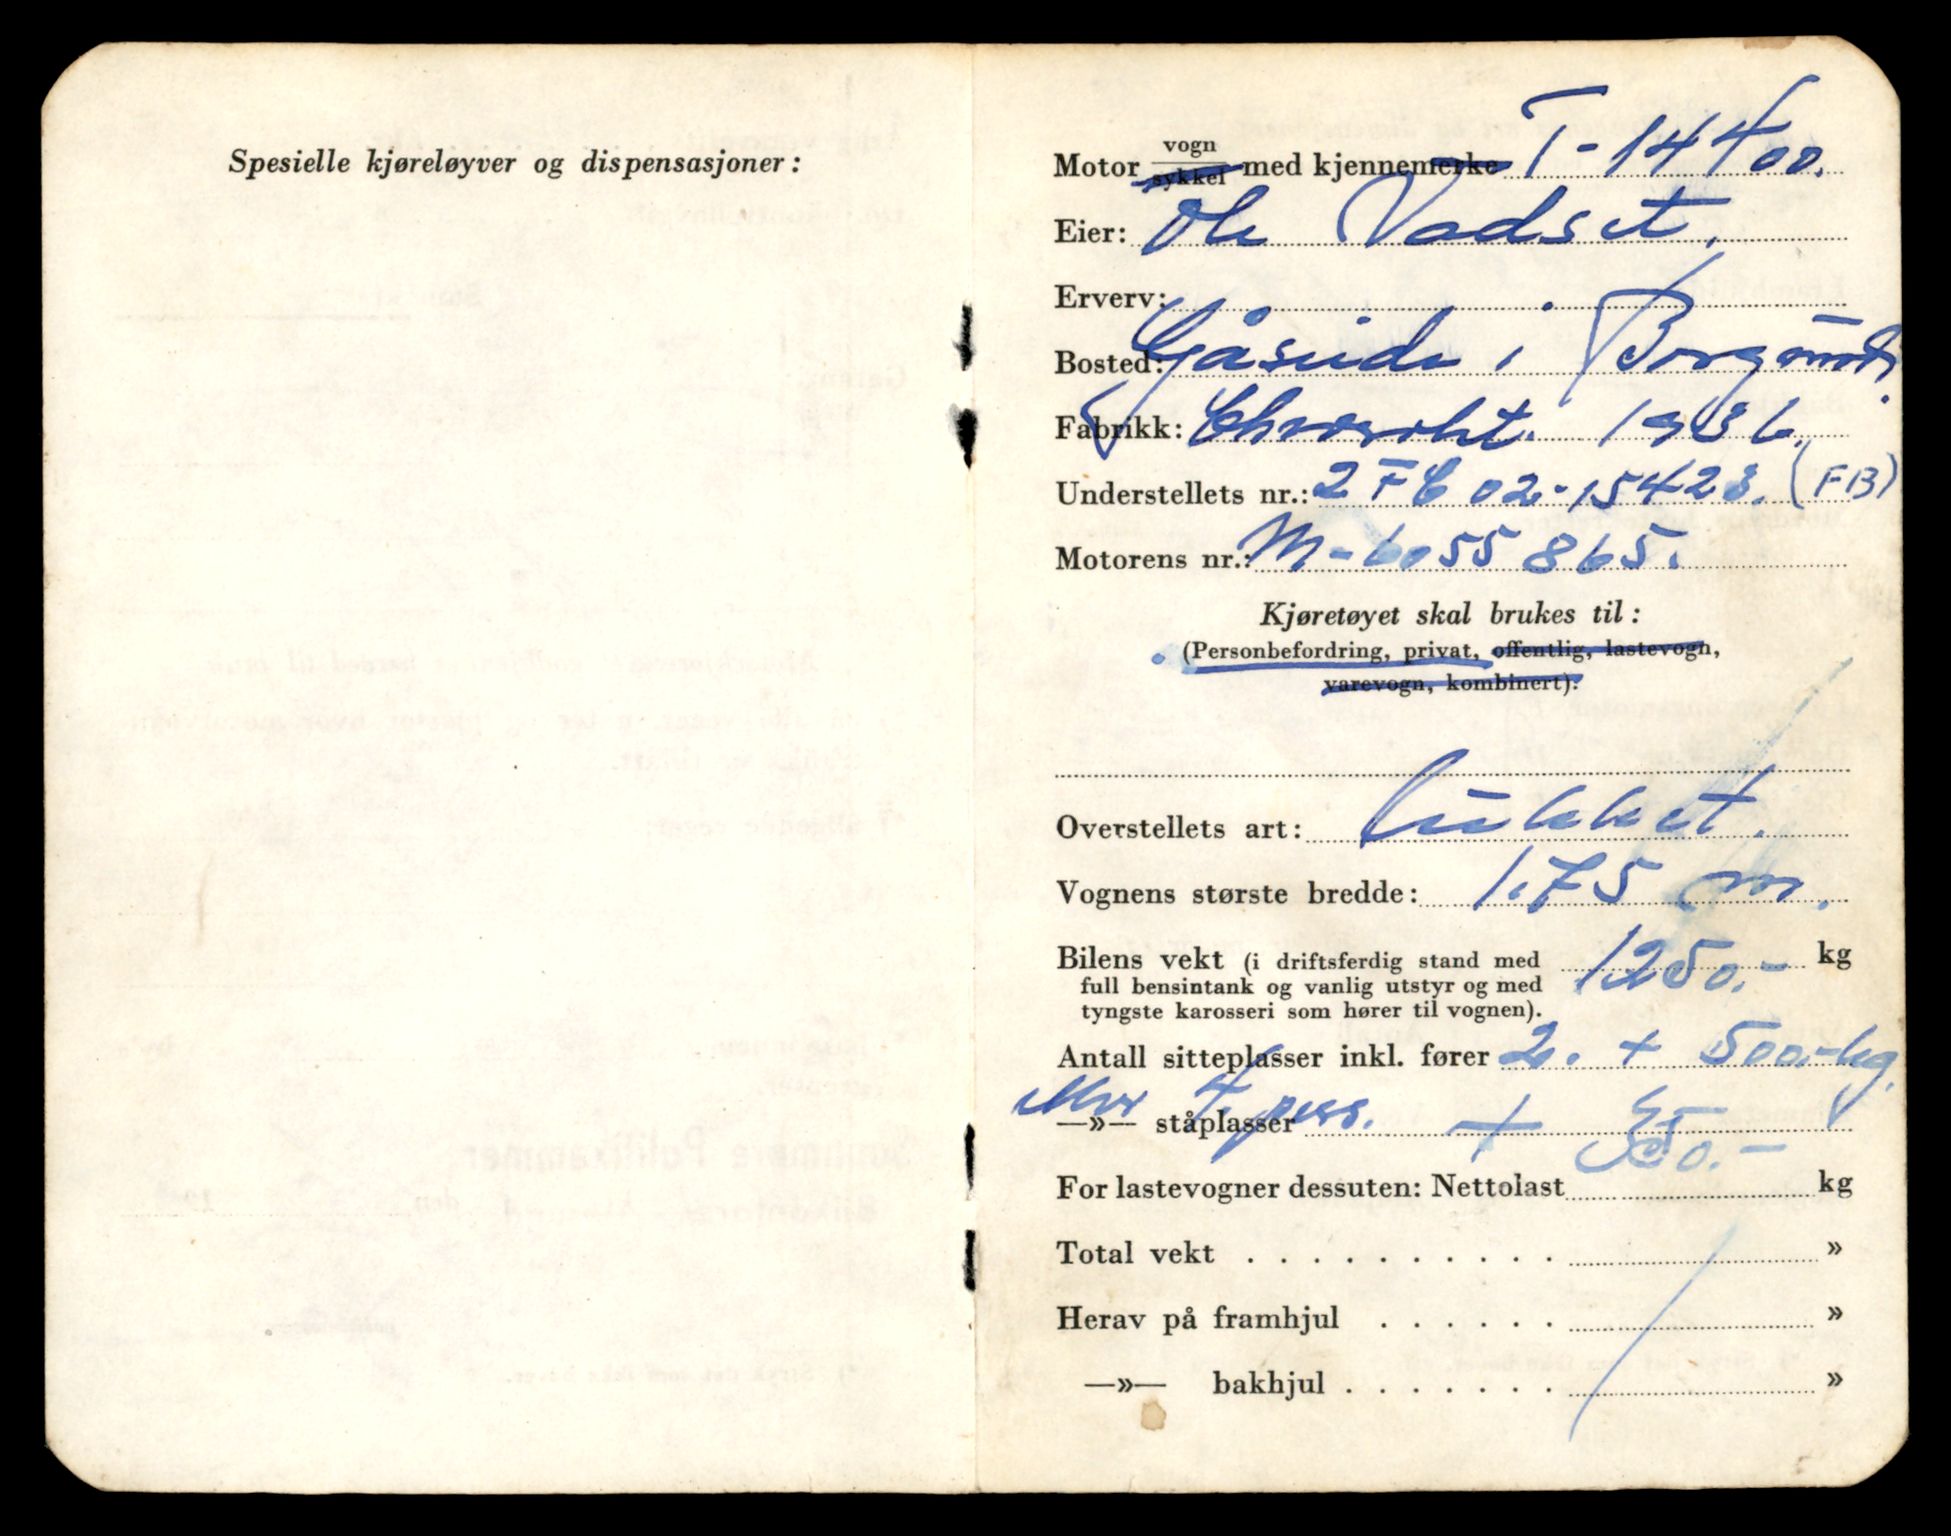 Spesielle kjøreløyver og dispensasjoner:
Motor vogn
sykkel med kjennemerke T-14400.
Eier: Ole Vadset.
Erverv:
Bosted: Gåseide i Borgund.
Fabrikk: Chevrolet. 1936.
Understellets nr.: 2 FC 02-15423. (FB)
Motorens nr.: M-6055865.
Kjøretøyet skal brukes til:
(Personbefordring, privat, offentlig, lastevogn,
varevogn, kombinert).
Overstellets art: lukket.
Vognens største bredde: 1.75 m.
Bilens vekt (i driftsferdig stand med 1250.- kg
full bensintank og vanlig utstyr og med
tyngste karosseri som hører til vognen).
Antall sitteplasser inkl. fører 2. + 500.-kg.
—»— ståplasser
4 pers. + 350.-
For lastevogner dessuten: Nettolast kg
Total vekt . . . . . . . . . . »
Herav på framhjul . . . . . . »
—»— bakhjul . . . . . . . »